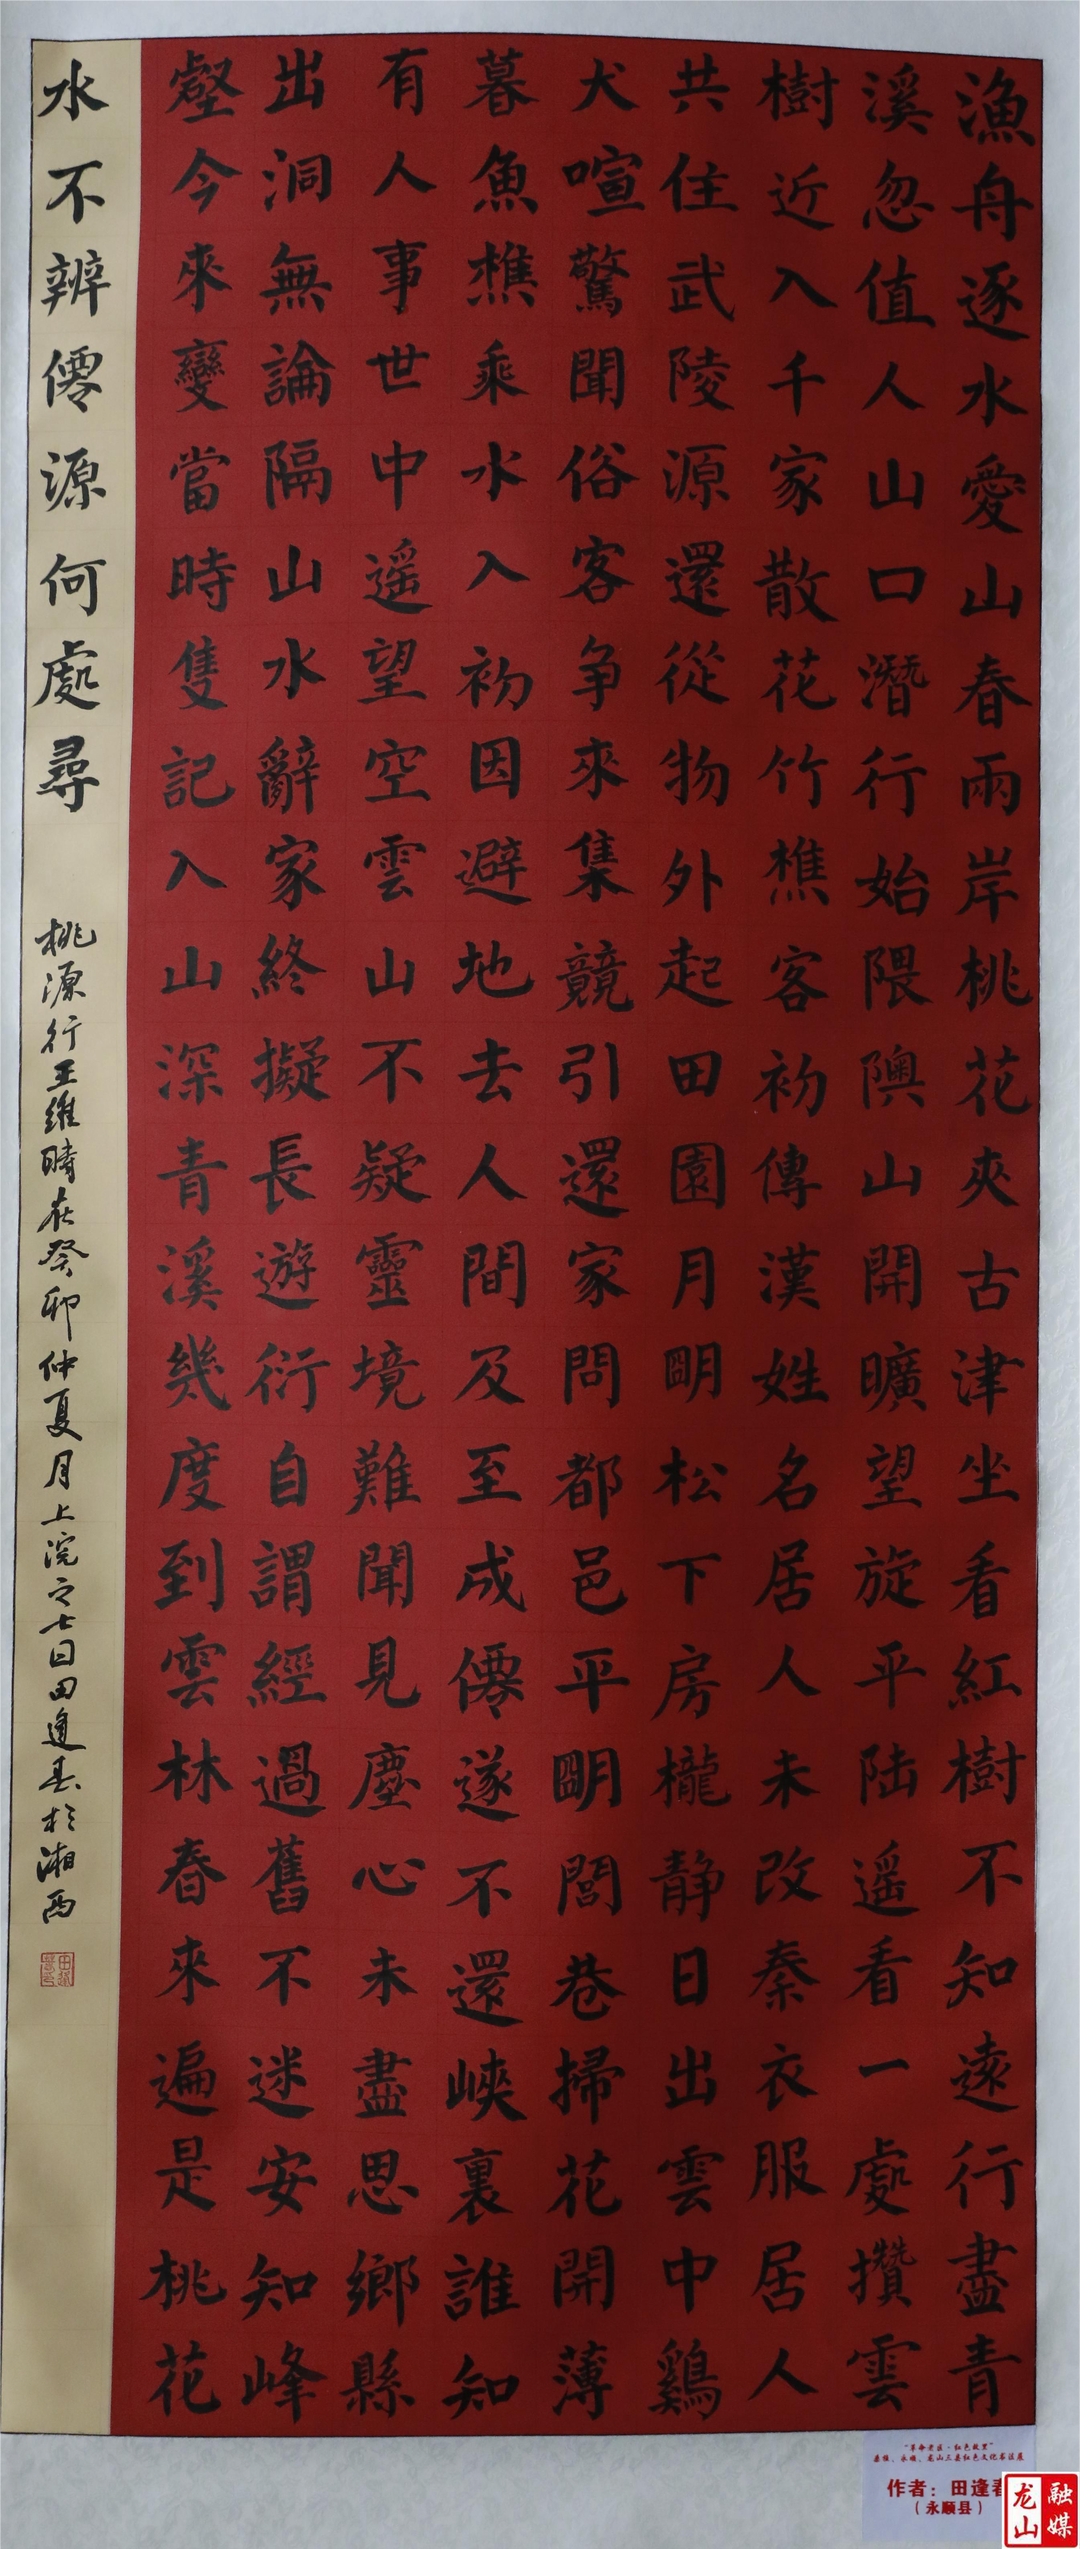 漁舟逐水愛山春兩岸桃花夾古津坐看紅樹不知遠行盡青
溪忽值人山口潛行始隈隩山開曠望旋平陸遥看一處攢雲
樹近入千家散花竹樵客初傳漢姓名居人未改秦衣服居人
共住武陵源還從物外起田園月明松下房櫳静日出雲中鷄
犬喧驚聞俗客争來集競引還家問都邑平明閭巷掃花開薄
暮魚樵乘水入初因避地去人間及至成僊遂不還峽裏誰知
有人事世中遥望空雲山不疑靈境難聞見塵心未盡思鄉縣
出洞無論隔山水辭家終擬長遊衍自謂經過舊不迷安知峰
壑今來變當時隻記入山深青溪幾度到雲林春來遍是桃花
水不辨僊源何處尋
桃源行王維時在癸卯仲夏月上浣之七日田逢春於湘西
“革命老区·红色故里”
桑植、永顺、龙山三县红色文化书法展
作者：田逢春
（永顺县）
龙山融媒